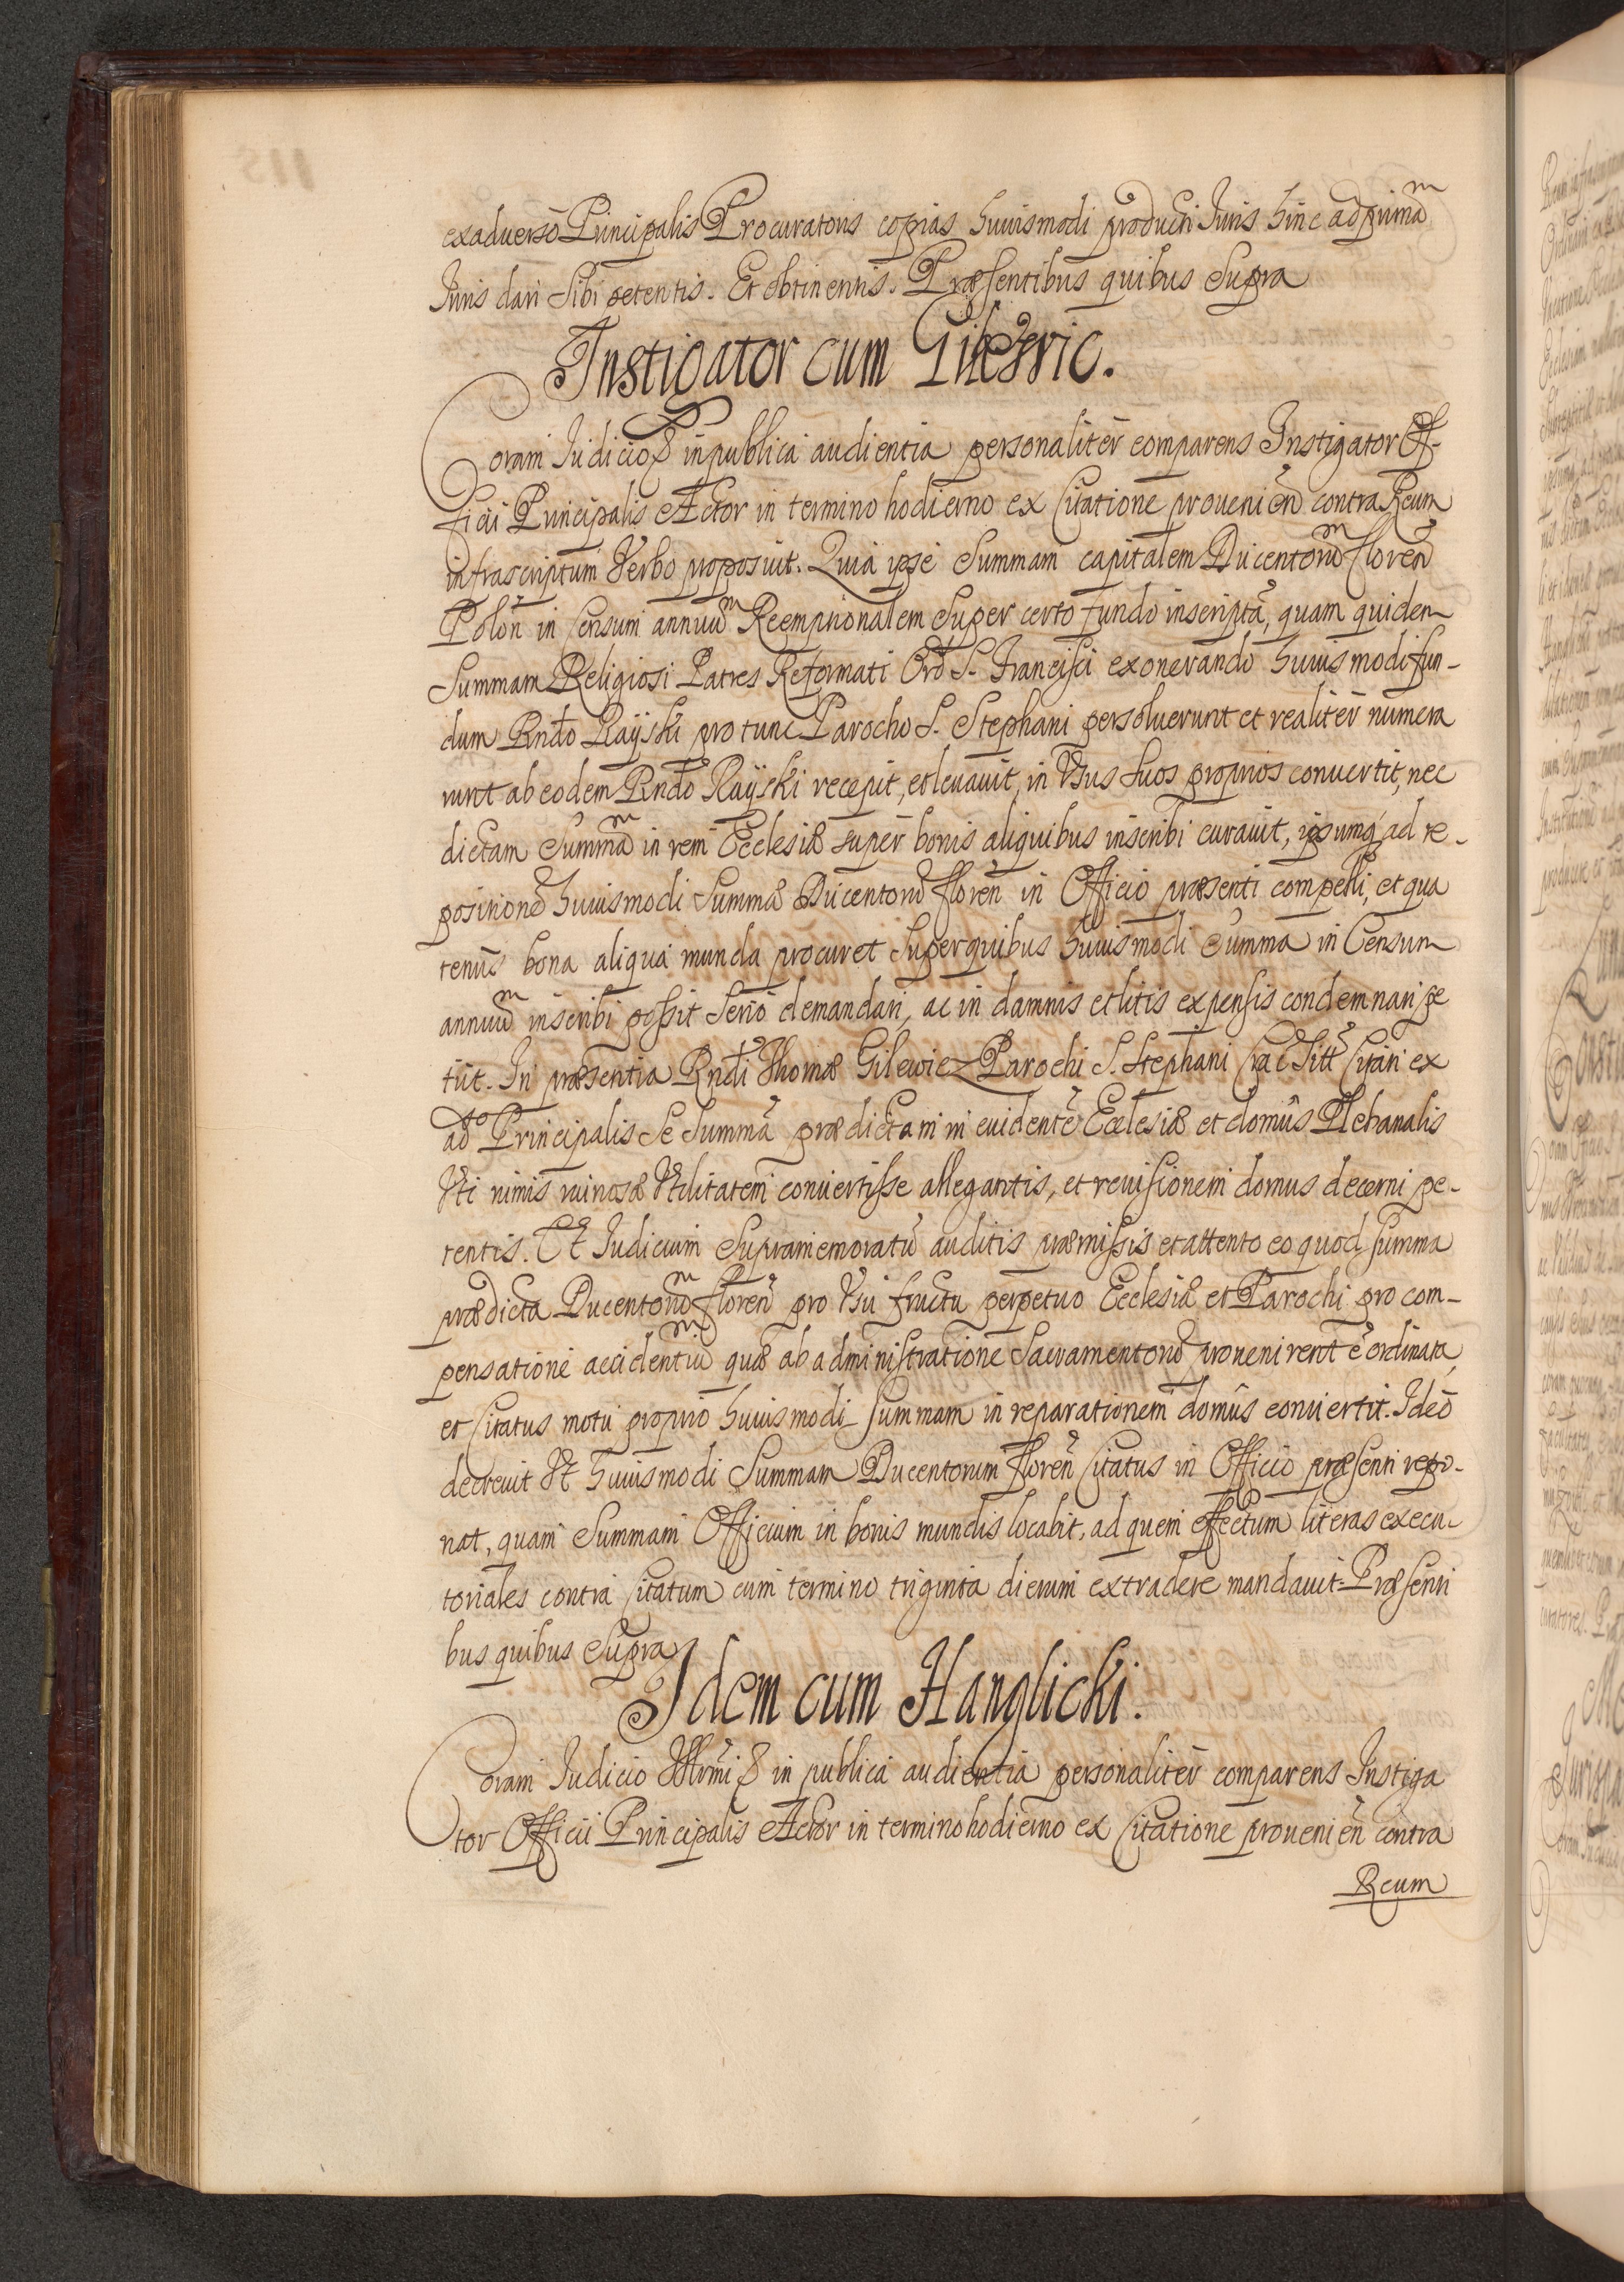 exaduerso Principalis Procuratoris copias huiusmodi producti Iuris hinc ad primā
Iuris dari Sibi petentis. Et obtinentis. Præsentibus quibus Supra
Instigator cum Gilewic.
Coram Iudicio & in publica audientia personaliter comparens Instigator Of-
ficii Principalis Actor in termino hodierno ex Citatione prouenieñ contra Reum
infrascriptum Verbo proposuit. Quia ipse Summam capitalem Ducentorū floreñ
Poloñ in Censum annuū Reemptionalem Super certo fundo inscriptā, quam quidem
Summam Religiosi Patres Reformati Ord S. Francisci exonerando huiusmodi fun-
dum Rndo Rayski pro tunc Parocho S. Stephani persoluerunt et realiter numera
runt ab eodem Rndo Rayski recepit, et leuauit, in Vsus Suos proprios conuertit, nec
dictam Summā in rem Ecclesiæ super bonis aliquibus inscribi curauit, ipsumq ad re-
positionē huiusmodi Summæ Ducentorū floreñ in Officio præsenti compelli, et qua
tenus bona aliqua munda procuret Super quibus huiusmodi Summa in Censum
annuū inscribi possit Serio demandari, ac in damnis et litis expensis condemnari pe
tiit. In præsentia Rndi Thomæ Gilewicz Parochi S. Stephani Crac Sitt Citati ex
ad Principalis Se Summā prædictam in euidentē Ecclesiæ et domûs Plebanalis
Vti nimis ruinosæ Vtilitatem conuertisse allegantis, et reuisionem domus decerni pe-
tentis. Et Iudicium Supramemoratū auditis præmissis et attento eo quod summa
prædicta Ducentorū floreñ pro Vsu fructu perpetuo Ecclesiæ et Parochi pro com-
pensatione accidentiū quæ ab administratione Sacramentorū prouenirent ē ordinata,
et Citatus motu proprio huiusmodi summam in reparationem domûs conuertit. Ideo
decreuit Vt huiusmodi Summam Ducentorum floreñ Citatus in Officio præsenti repo-
nat, quam Summam Officium in bonis mundis locabit, ad quem effectum literas execu-
toriales contra Citatum cum termino triginta dierum extradere mandauit. Præsenti
bus quibus Supra
Idem cum Hanglicki.
Coram Iudicio Illrmi & in publica audientia personaliter comparens Instiga
tor Officii Principalis Actor in termino hodierno ex Citatione prouenieñ contra
Reum